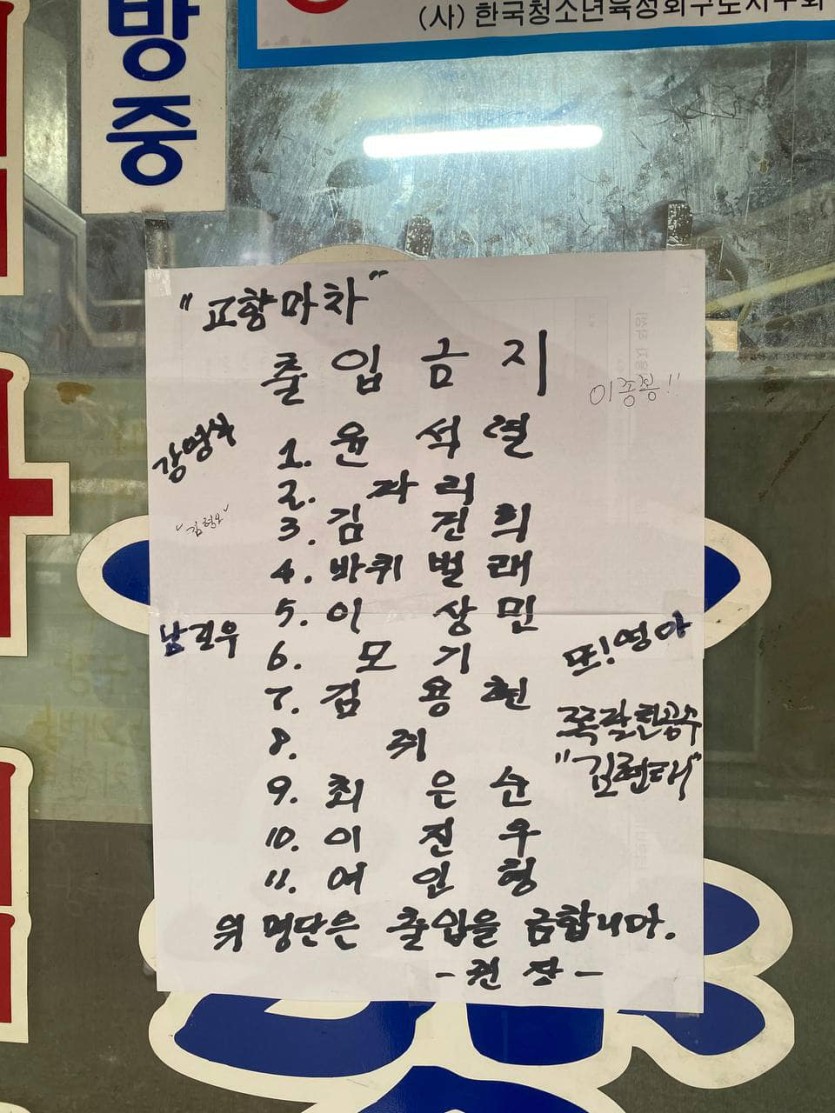 방중
(사) 한국청소년육성회구로지구회
"고향마차"
출입금지
이종봉!!
강영식
1. 윤석열
2. 파리
3. 김건희
"김혁오"
4. 바퀴벌래
5. 이상민
남긴우
6. 모기
또!영아
7. 김용현
8. 쥐
쪽팔린공수
"김현태"
9. 최은순
10. 이진우
11. 여인형
위 명단은 출입을 금합니다.